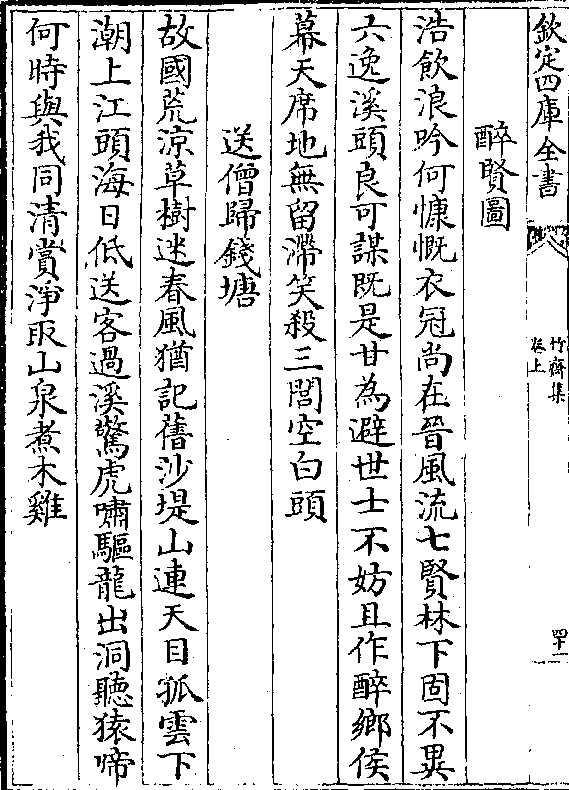 欽定四庫全書
竹齋集
卷上
四十一
醉賢圖
浩飲浪吟何慷慨衣冠尚在晉風流七賢林下固不異
六逸溪頭良可謀既是甘為避世士不妨且作醉鄉侯
幕天席地無留滯笑殺三閭空白頭
送僧歸錢塘
故國荒涼草樹迷春風猶記舊沙堤山連天目孤雲下
潮上江頭海日低送客過溪驚虎嘯驅龍出洞聽猿啼
何時與我同清賞淨取山泉煮木雞